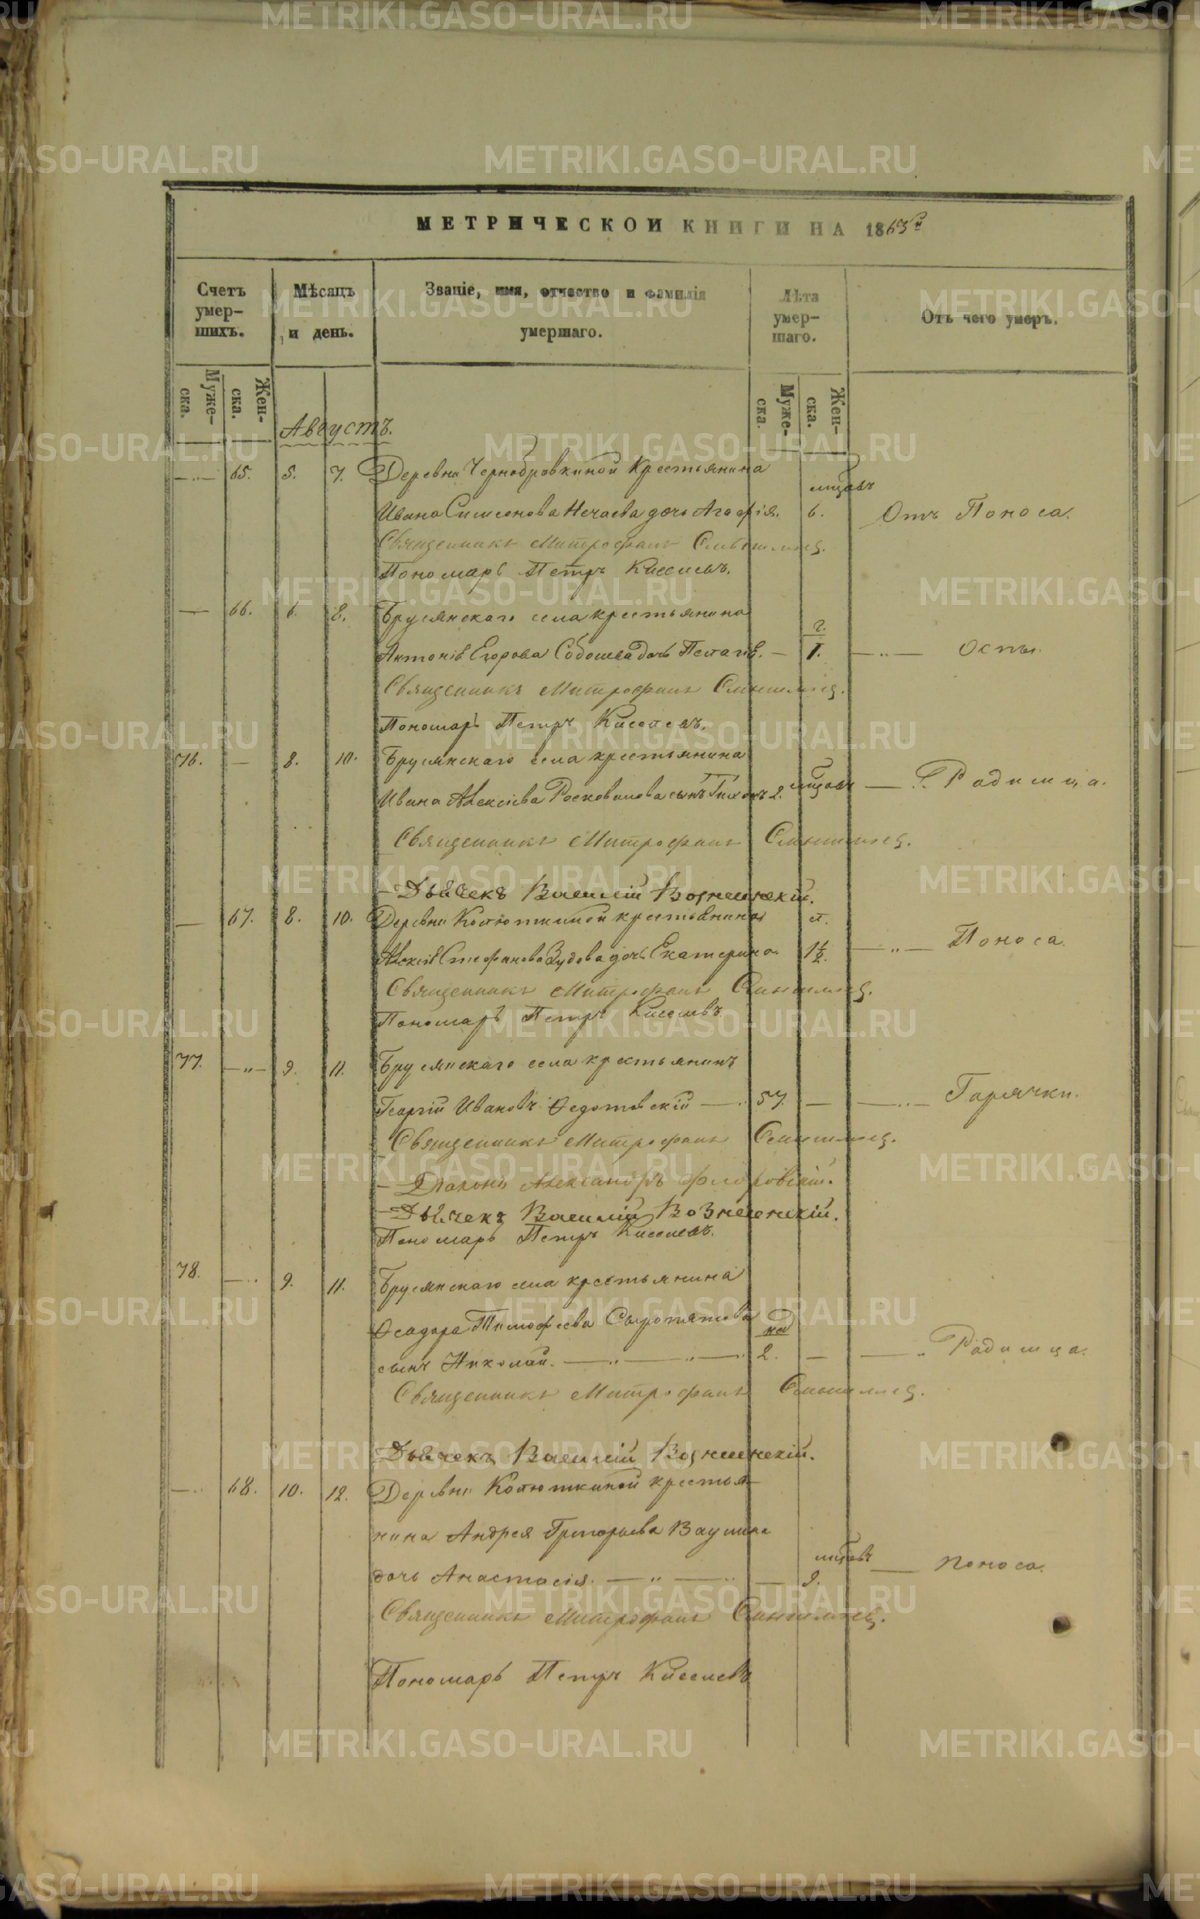 МЕТРИЧЕСКОЙ КНИГИ НА 1863й
Счетъ умер-шихъ.
Мѣсяцъ и день.
Званіе, имя, отчество и фамилія умершаго.
Лѣта умер-шаго.
Отъ чего умеръ.
Муже-ска.
Жен-ска.
Муже-ска.
Жен-ска.
Августъ.
65. 5. 7. Деревни Чернобровкиной Крестьянина
Ивана Симеонова Нечаева дочь Агафія. 6. Отъ Поноса.
Священникъ Митрофанъ
Пономарь Петръ Киселевъ.
66. 6. 8. Брусянскаго села крестьянина
г.
Антонія Егорова дочь 1. Оспы.
Священникъ Митрофанъ
Пономарь Петръ Киселевъ.
76. 8. 10. Брусянскаго села крестьянина
Ивана Алексіева сынъ Тихонъ 2. Родимца.
Священникъ Митрофанъ
Дьячекъ Василій Вознесенскій.
67. 8. 10. Деревни Колюткиной крестьянина
Алексія Стефанова дочь Екатерина 1½. Поноса.
Священникъ Митрофанъ
Пономарь Петръ Киселевъ
77. 9. 11. Брусянскаго села крестьянинъ
Георгій Ивановъ Ѳедотовскій 57. Горячки.
Священникъ Митрофанъ
Діаконъ Александръ Флоровскій.
Дьячекъ Василій Вознесенскій.
Пономарь Петръ Киселевъ.
78. 9. 11. Брусянскаго села крестьянина
Ѳеодора Тимофеева Сыропятова нед
сынъ Николай. 2. Родимца.
Священникъ Митрофанъ
Дьячекъ Василій Вознесенскій.
68. 10. 12. Деревни Колюткиной крестья-
нина Андрея Григорьева Ваулина
дочь Анастасія. 9. Поноса.
Священникъ Митрофанъ
Пономарь Петръ Киселевъ
METRIKI.GASO-URAL.RU